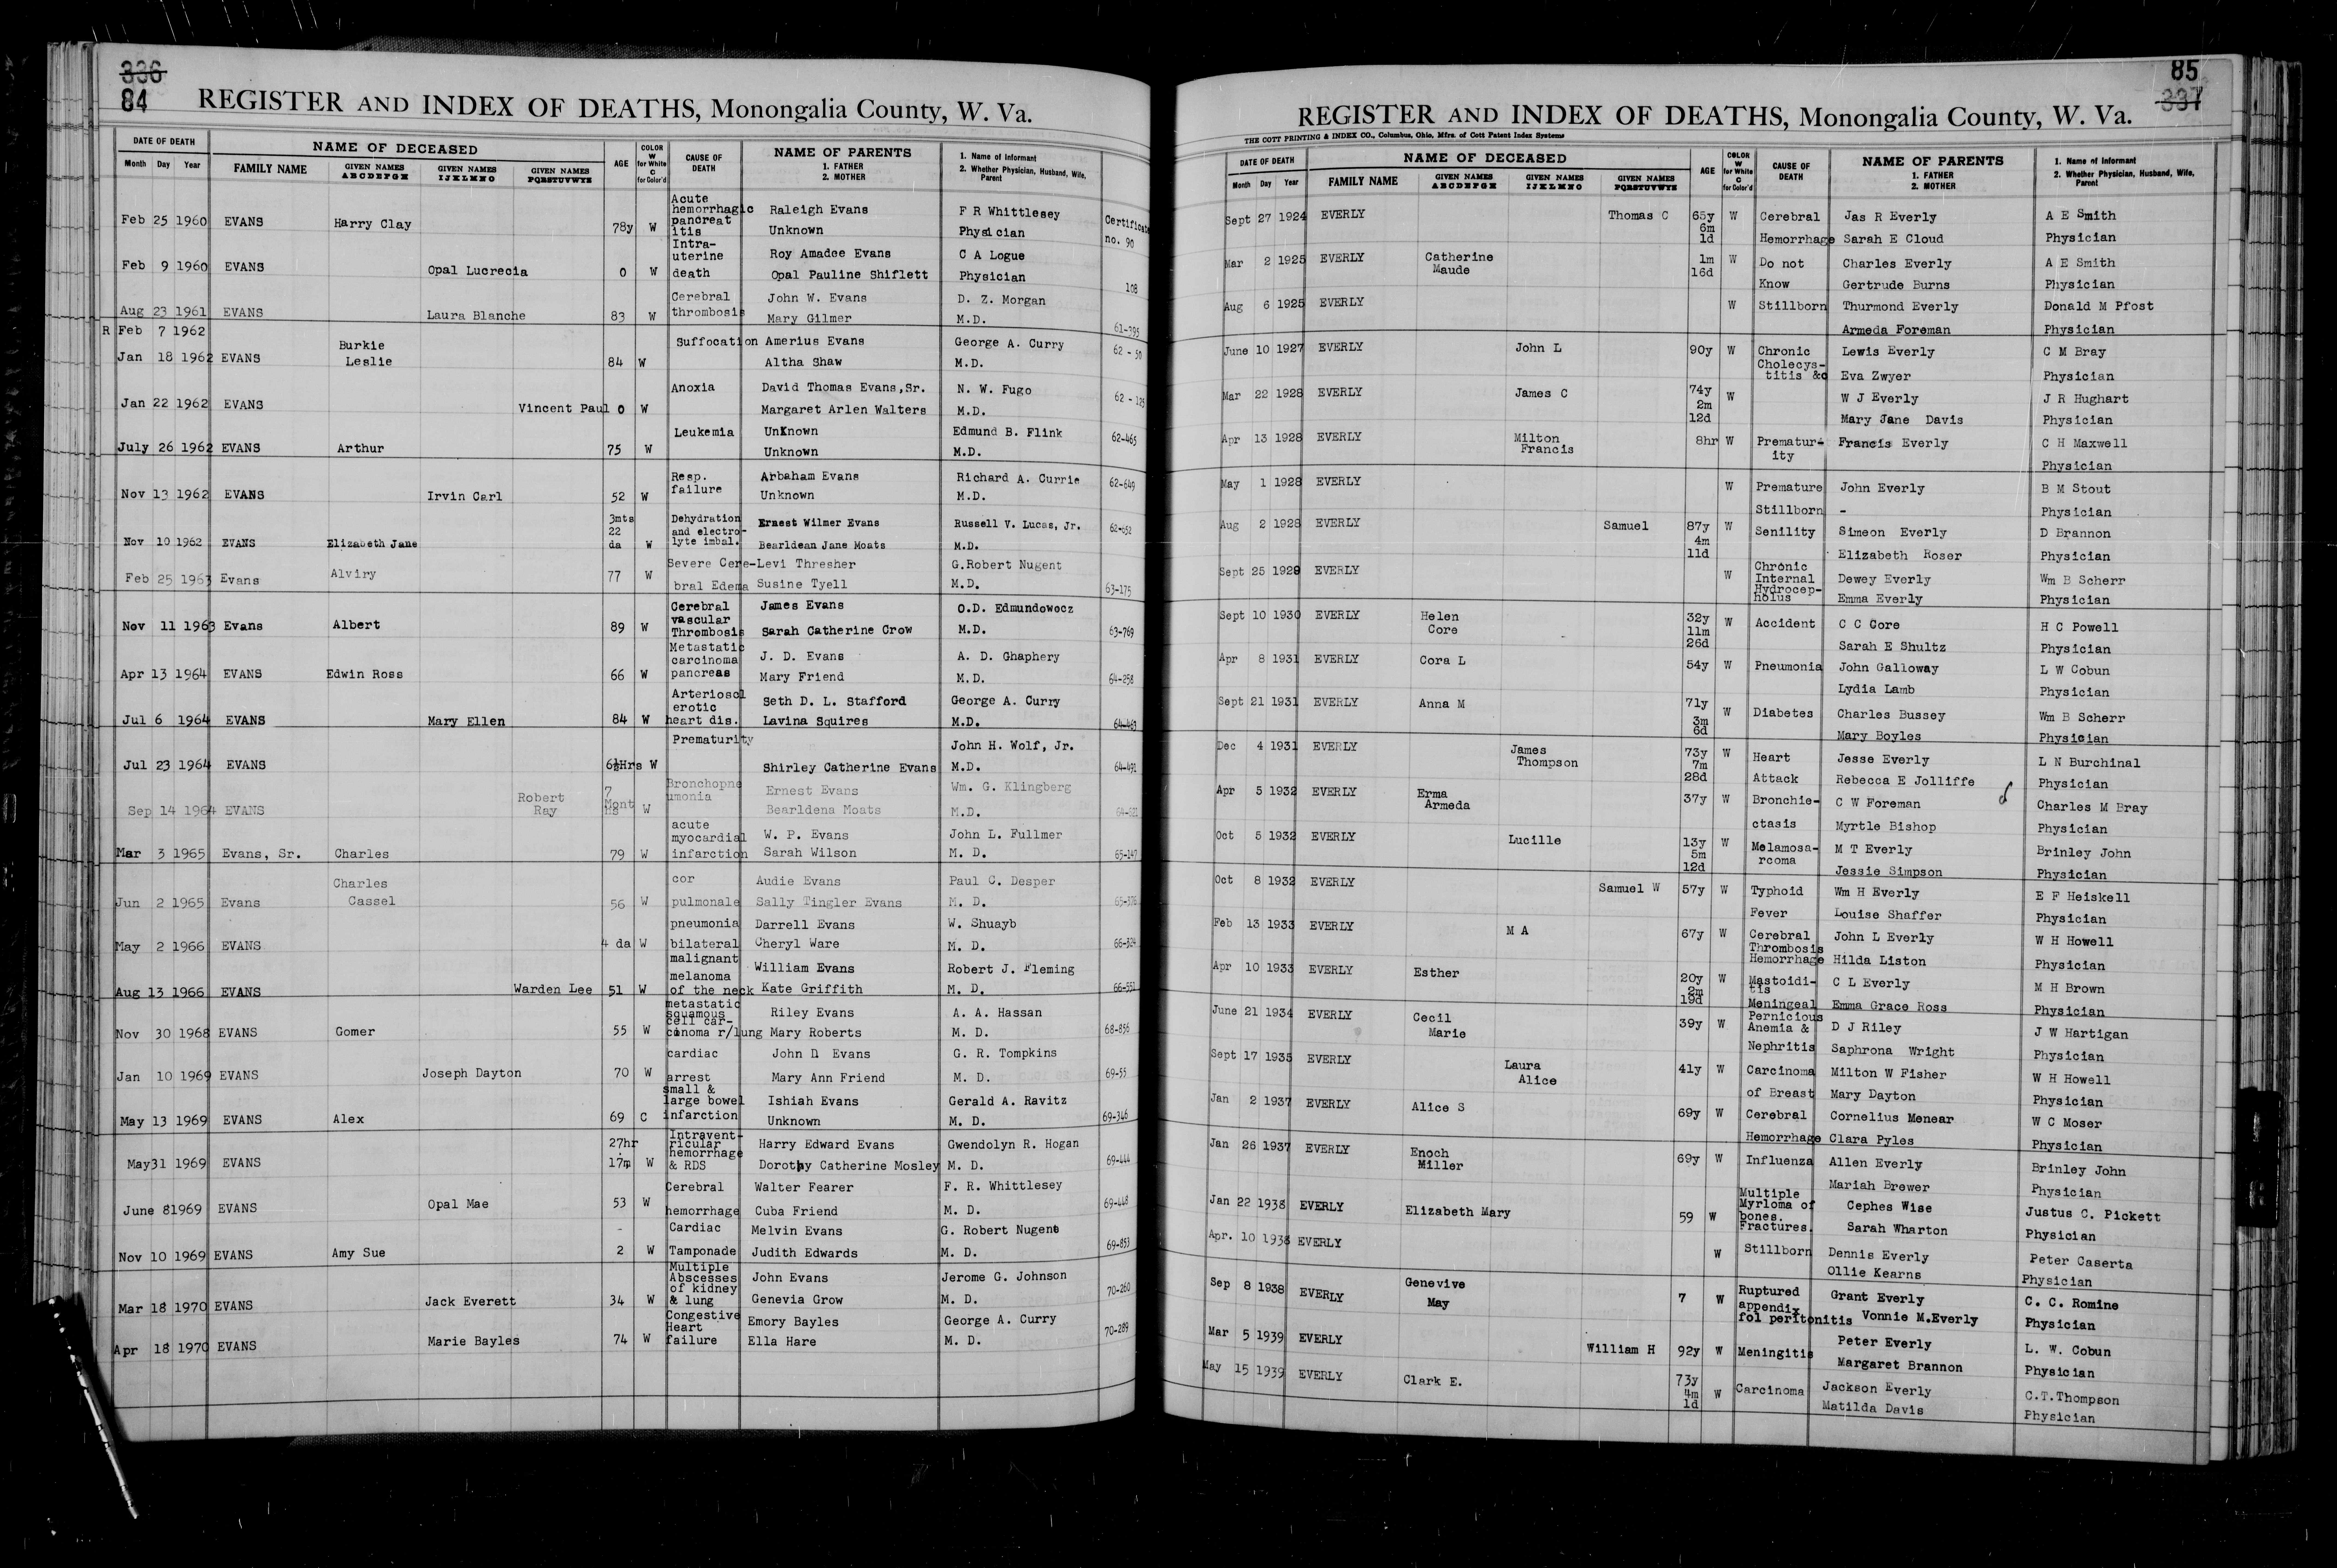 336
84 REGISTER AND INDEX OF DEATHS, Monongalia County, W. Va.
DATE OF DEATH NAME OF DECEASED AGE COLOR W for White C for Color'd CAUSE OF DEATH NAME OF PARENTS 1. FATHER 2. MOTHER 1. Name of Informant 2. Whether Physician, Husband, Wife, Parent
Month Day Year FAMILY NAME GIVEN NAMES ABCDEFGH GIVEN NAMES IJKLMNO GIVEN NAMES PQRSTUVWYZ
Feb 25 1960 EVANS Harry Clay 78y W Acute hemorrhagic pancreatitis Raleigh Evans F R Whittlesey Certificate
Unknown Physician no. 90
Feb 9 1960 EVANS Opal Lucrecia 0 W Intra-uterine death Roy Amadee Evans C A Logue
Opal Pauline Shiflett Physician 108
Aug 23 1961 EVANS Laura Blanche 83 W Cerebral thrombosis John W. Evans D. Z. Morgan
Mary Gilmer M.D. 61-395
R Feb 7 1962
Jan 18 1962 EVANS Burkie Leslie 84 W Suffocation Amerius Evans George A. Curry 62-50
Altha Shaw M.D.
Jan 22 1962 EVANS Vincent Paul 0 W Anoxia David Thomas Evans,Sr. N. W. Fugo 62-125
Margaret Arlen Walters M.D.
July 26 1962 EVANS Arthur 75 W Leukemia UnKnown Edmund B. Flink 62-465
Unknown M.D.
Nov 13 1962 EVANS Irvin Carl 52 W Resp. failure Arbaham Evans Richard A. Currie 62-649
Unknown M.D.
Nov 10 1962 EVANS Elizabeth Jane 3mts 22 da W Dehydration and electro-lyte imbal. Ernest Wilmer Evans Russell V. Lucas, Jr. 62-652
Bearldean Jane Moats M.D.
Feb 25 1963 Evans Alviry 77 W Severe Cere-bral Edema Levi Thresher G.Robert Nugent
Susine Tyell M.D. 63-175
Nov 11 1963 Evans Albert 89 W Cerebral vascular Thrombosis James Evans O.D. Edmundowocz
Sarah Catherine Crow M.D. 63-769
Apr 13 1964 EVANS Edwin Ross 66 W Metastatic carcinoma pancreas J. D. Evans A. D. Ghaphery
Mary Friend M.D. 64-258
Jul 6 1964 EVANS Mary Ellen 84 W Arteriosclerotic heart dis. Seth D. L. Stafford George A. Curry
Lavina Squires M.D. 64-463
Jul 23 1964 EVANS 6½Hrs W Prematurity John H. Wolf, Jr.
Shirley Catherine Evans M.D. 64-491
Sep 14 1964 EVANS Robert Ray 7 Months W Bronchopneumonia Ernest Evans Wm. G. Klingberg
Bearldena Moats M.D.
Mar 3 1965 Evans, Sr. Charles 79 W acute myocardial infarction W. P. Evans John L. Fullmer
Sarah Wilson M. D. 65-147
Jun 2 1965 Evans Charles Cassel 56 W cor pulmonale Audie Evans Paul C. Desper
Sally Tingler Evans M. D. 65-376
May 2 1966 EVANS 4 da W pneumonia bilateral Darrell Evans W. Shuayb
Cheryl Ware M. D. 66-324
Aug 13 1966 EVANS Warden Lee 51 W malignant melanoma of the neck William Evans Robert J. Fleming
Kate Griffith M. D. 66-551
Nov 30 1968 EVANS Gomer 55 W metastatic squamous cell car-cinoma r/lung Riley Evans A. A. Hassan
Mary Roberts M. D. 68-856
Jan 10 1969 EVANS Joseph Dayton 70 W cardiac arrest John D Evans G. R. Tompkins
Mary Ann Friend M. D. 69-55
May 13 1969 EVANS Alex 69 C small & large bowel infarction Ishiah Evans Gerald A. Ravitz
Unknown M. D. 69-346
May31 1969 EVANS 27hr. 17m W Intravent-ricular hemorrhage & RDS Harry Edward Evans Gwendolyn R. Hogan
Dorothy Catherine Mosley M. D. 69-444
June 81969 EVANS Opal Mae 53 W Cerebral hemorrhage Walter Fearer F. R. Whittlesey
Cuba Friend M. D. 69-448
Nov 10 1969 EVANS Amy Sue 2 W Cardiac Tamponade Melvin Evans G. Robert Nugent
Judith Edwards M. D. 69-853
Mar 18 1970 EVANS Jack Everett 34 W Multiple Abscesses of kidney & lung John Evans Jerome G. Johnson
Genevia Grow M. D. 70-260
Apr 18 1970 EVANS Marie Bayles 74 W Congestive Heart failure Emory Bayles George A. Curry
Ella Hare M. D. 70-289
85
REGISTER AND INDEX OF DEATHS, Monongalia County, W. Va. 337
THE COTT PRINTING & INDEX CO., Columbus, Ohio, Mfrs. of Cott Patent Index Systems
DATE OF DEATH NAME OF DECEASED AGE COLOR W for White C for Color'd CAUSE OF DEATH NAME OF PARENTS 1. FATHER 2. MOTHER 1. Name of Informant 2. Whether Physician, Husband, Wife, Parent
Month Day Year FAMILY NAME GIVEN NAMES ABCDEFGH GIVEN NAMES IJKLMNO GIVEN NAMES PQRSTUVWYZ
Sept 27 1924 EVERLY Thomas C 65y 6m 1d W Cerebral Hemorrhage Jas R Everly A E Smith
Sarah E Cloud Physician
Mar 2 1925 EVERLY Catherine Maude 1m 16d W Do not Know Charles Everly A E Smith
Gertrude Burns Physician
Aug 6 1925 EVERLY W Stillborn Thurmond Everly Donald M Pfost
Armeda Foreman Physician
June 10 1927 EVERLY John L 90y W Chronic Cholecys-titis &c Lewis Everly C M Bray
Eva Zwyer Physician
Mar 22 1928 EVERLY James C 74y 2m 12d W W J Everly J R Hughart
Mary Jane Davis Physician
Apr 13 1928 EVERLY Milton Francis 8hr W Prematur-ity Francis Everly C H Maxwell
Physician
May 1 1928 EVERLY W Premature Stillborn John Everly B M Stout
- Physician
Aug 2 1928 EVERLY Samuel 87y 4m 11d W Senility Simeon Everly D Brannon
Elizabeth Roser Physician
Sept 25 1929 EVERLY W Chronic Internal Hydrocep-holus Dewey Everly Wm B Scherr
Emma Everly Physician
Sept 10 1930 EVERLY Helen Core 32y 11m 26d W Accident C C Core H C Powell
Sarah E Shultz Physician
Apr 8 1931 EVERLY Cora L 54y W Pneumonia John Galloway L W Cobun
Lydia Lamb Physician
Sept 21 1931 EVERLY Anna M 71y 3m 6d W Diabetes Charles Bussey Wm B Scherr
Mary Boyles Physician
Dec 4 1931 EVERLY James Thompson 73y 7m 28d W Heart Attack Jesse Everly L N Burchinal
Rebecca E Jolliffe Physician
Apr 5 1932 EVERLY Erma Armeda 37y W Bronchie-ctasis C W Foreman Charles M Bray
Myrtle Bishop Physician
Oct 5 1932 EVERLY Lucille 13y 5m 12d W Melamosa-rcoma M T Everly Brinley John
Jessie Simpson Physician
Oct 8 1932 EVERLY Samuel W 57y W Typhoid Fever Wm H Everly E F Heiskell
Louise Shaffer Physician
Feb 13 1933 EVERLY M A 67y W Cerebral Thrombosis Hemorrhage John L Everly W H Howell
Hilda Liston Physician
Apr 10 1933 EVERLY Esther 20y 2m 19d W Mastoidi-tis Meningeal C L Everly M H Brown
Emma Grace Ross Physician
June 21 1934 EVERLY Cecil Marie 39y W Pernicious Anemia & Nephritis D J Riley J W Hartigan
Saphrona Wright Physician
Sept 17 1935 EVERLY Laura Alice 41y W Carcinoma of Breast Milton W Fisher W H Howell
Mary Dayton Physician
Jan 2 1937 EVERLY Alice S 69y W Cerebral Hemorrhage Cornelius Menear W C Moser
Clara Pyles Physician
Jan 26 1937 EVERLY Enoch Miller 69y W Influenza Allen Everly Brinley John
Mariah Brewer Physician
Jan 22 1938 EVERLY Elizabeth Mary 59 W Multiple Myrloma of bones. Fractures. Cephes Wise Justus C. Pickett
Sarah Wharton Physician
Apr. 10 1938 EVERLY W Stillborn Dennis Everly Peter Caserta
Ollie Kearns Physician
Sep 8 1938 EVERLY Genevive May 7 W Ruptured appendix fol peritonitis Grant Everly C. C. Romine
Vonnie M.Everly Physician
Mar 5 1939 EVERLY William H 92y W Meningitis Peter Everly L. W. Cobun
Margaret Brannon Physician
May 15 1939 EVERLY Clark E. 73y 4m 1d W Carcinoma Jackson Everly C.T.Thompson
Matilda Davis Physician